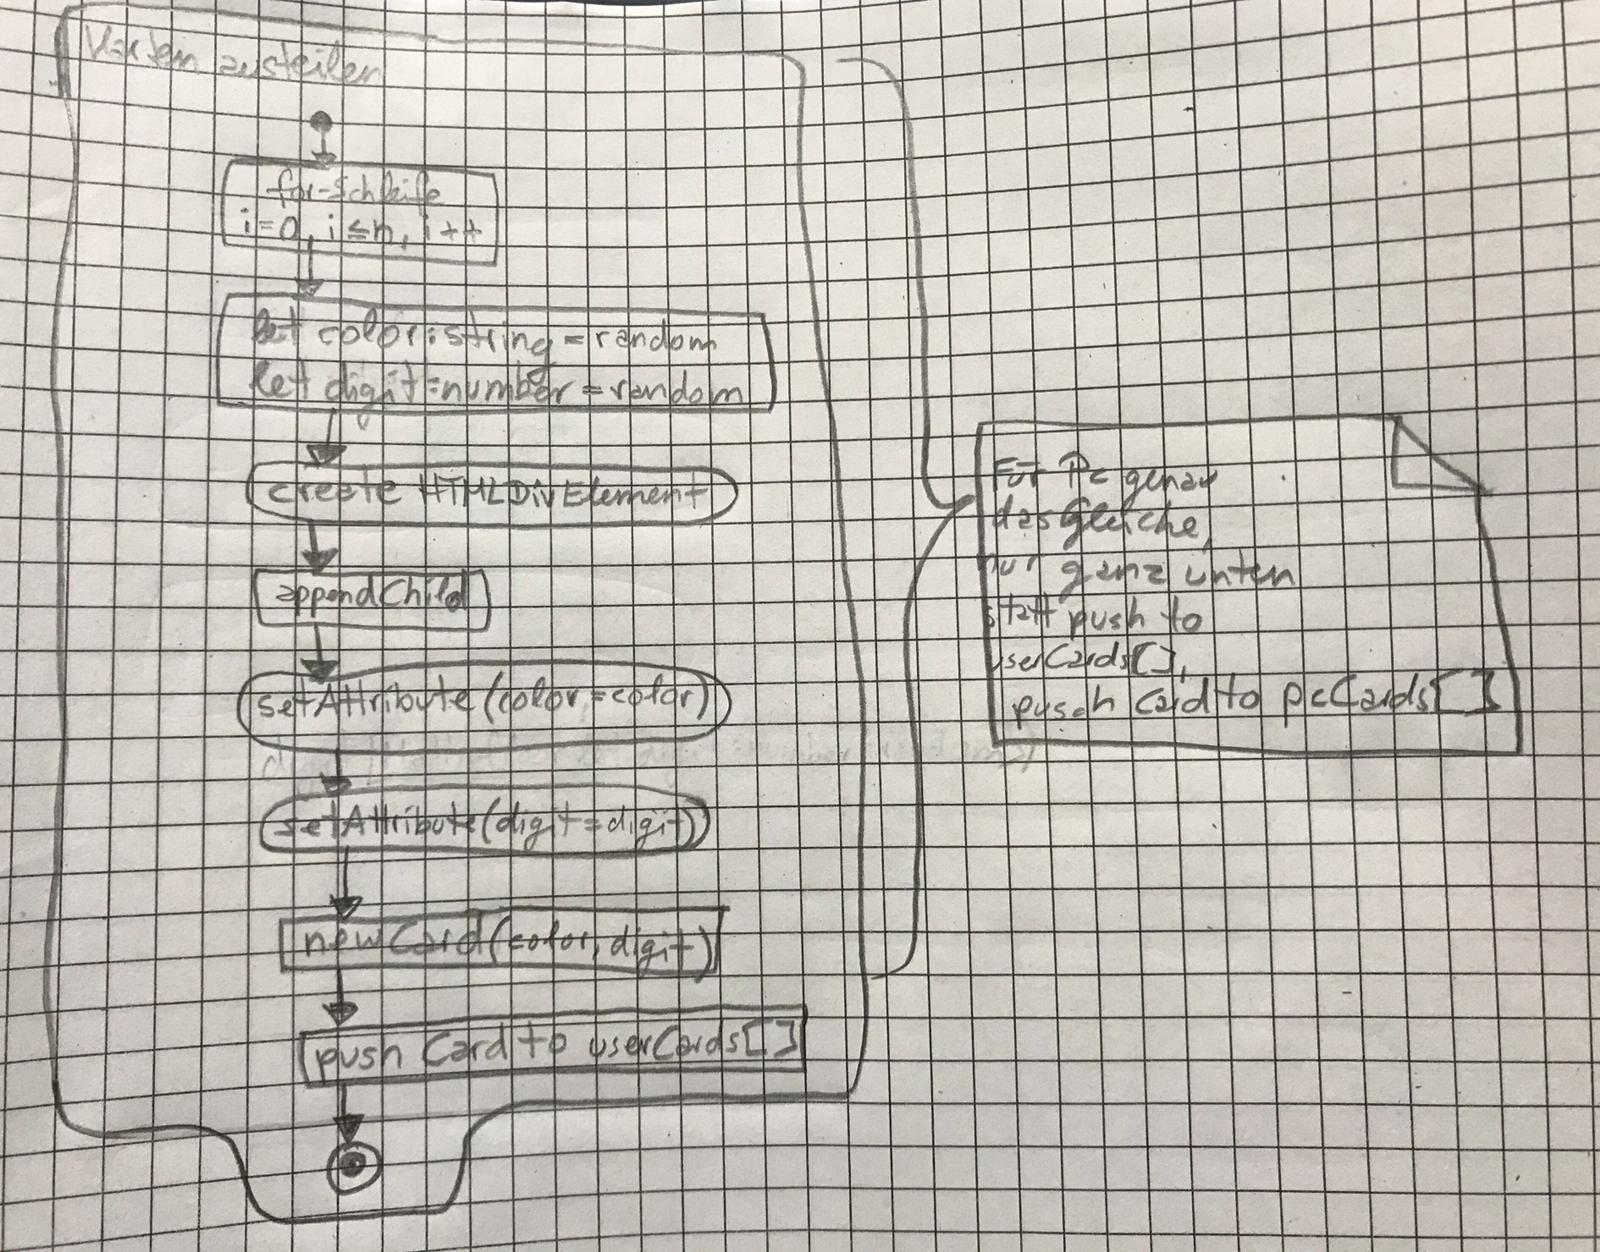 Karten zusteilen
for-Schleife
i=0, i≤n, i++
let color:string = random
let digit:number = random
create HTMLDivElement
appendChild
setAttribute(color=color)
setAttribute(digit=digit)
newCard(color, digit)
push Card to userCards[]
Für Pc genau
das Gleiche,
nur ganz unten
statt push to
userCards[],
push Card to pcCards[]